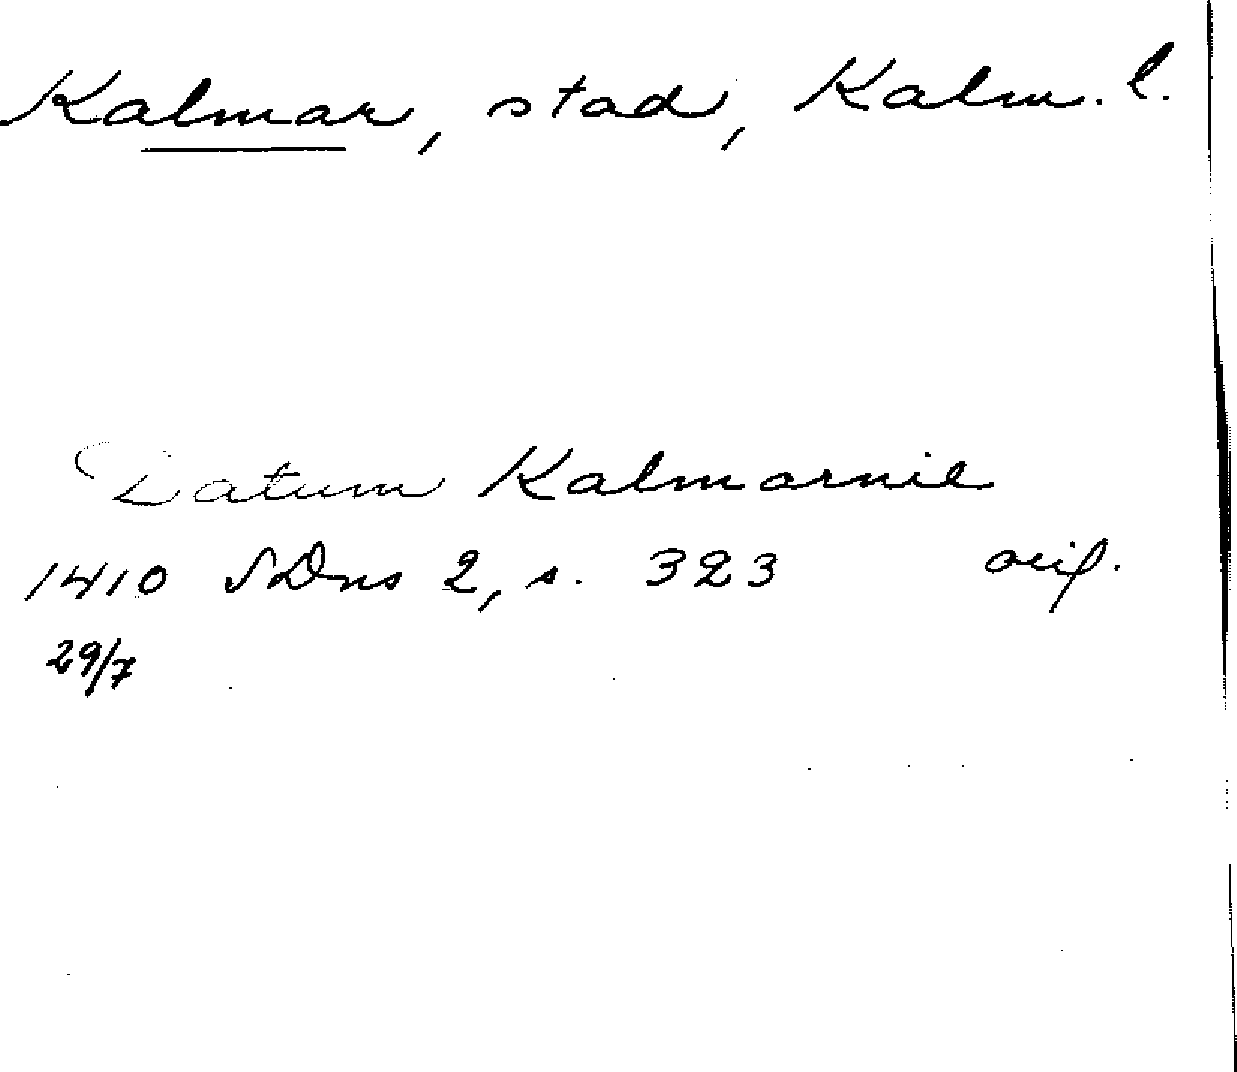 Kalmar, stad, Kalm. l.
Datum Kalmarnie
1410 SDns 2, s. 323 orig.
29/7